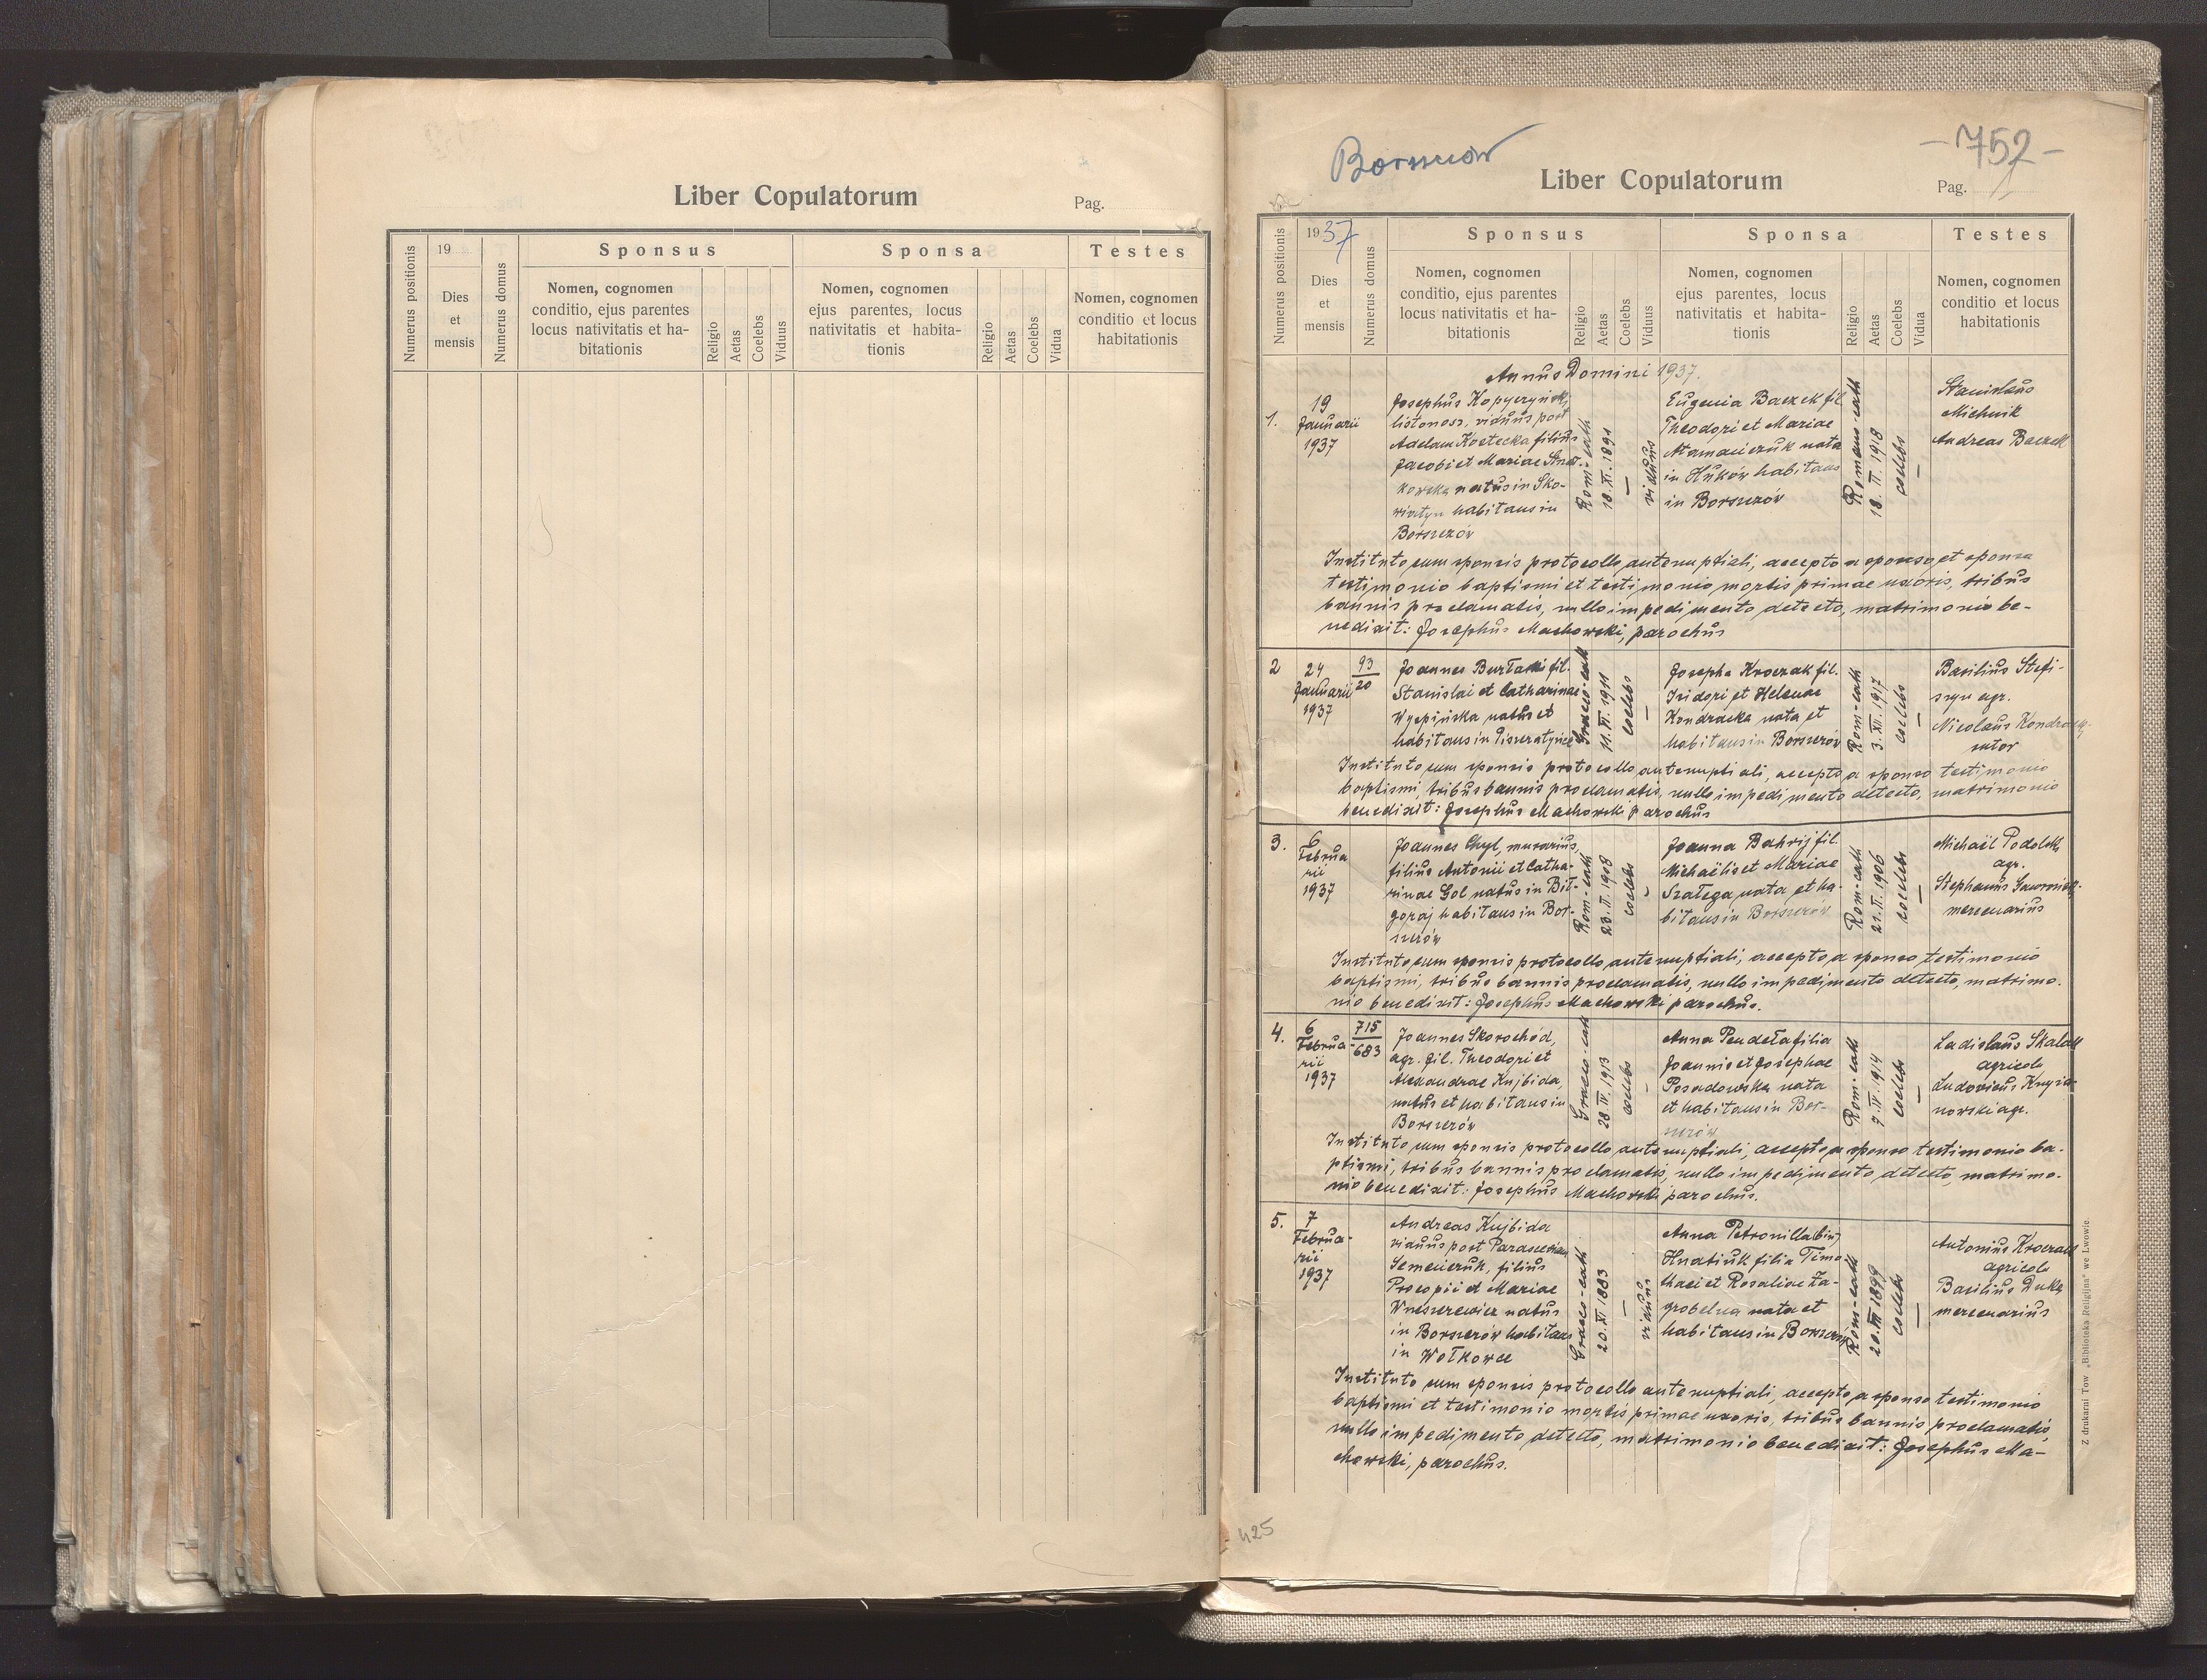 Liber Copulatorum
Pag.
Numerus positionis
19
Dies
et
mensis
Numerus domus
Sponsus
Nomen, cognomen
conditio, ejus parentes
locus nativitatis et ha-
bitationis
Religio
Aetas
Coelebs
Viduus
Sponsa
Nomen, cognomen
ejus parentes, locus
nativitatis et habita-
tionis
Religio
Aetas
Coelebs
Vidua
Testes
Nomen, cognomen
conditio et locus
habitationis
Borszczów
-752-
Liber Copulatorum
Pag. 1
Numerus positionis
1937
Dies
et
mensis
Numerus domus
Sponsus
Nomen, cognomen
conditio, ejus parentes
locus nativitatis et ha-
bitationis
Religio
Aetas
Coelebs
Viduus
Sponsa
Nomen, cognomen
ejus parentes, locus
nativitatis et habita-
tionis
Religio
Aetas
Coelebs
Vidua
Testes
Nomen, cognomen
conditio et locus
habitationis
Annus Domini 1937.
1.
19
Januarii
1937
Josephus Kopyczyński,
listonosz, viduus post
Adelam Kostecka filius
Jacobi et Mariae
natus in Sko-
wiatyn habitans in
Borszczów
Rom-cath
18.XI.1891
—
viduus
Eugenia Baczek fil.
Theodori et Mariae
Atamańczuk nata
in Huków habitans
in Borszczów
Romano-cath
18. II. 1918
coelebs
—
Stanislaus
Michnik
Andreas Baczek
Instituto cum sponsis protocollo antenuptiali, accepto a sponso et sponsa
testimonio baptismi et testimonio mortis primae uxoris, tribus
bannis proclamatis, nullo impedimento detecto, matrimonio be-
nedixit: Josephus Machowski, parochus
2
24
Januarii
1937
93
20
Joannes Burtak fil.
Stanislai et Catharinae
Wyspińska natus et
habitans in Piszczatyńce
Graeco-cath
11. VI. 1911
coelebs
—
Josepha Kroczak fil.
Isidori et Helenae
Kondracka nata et
habitans in Borszczów
Rom-cath
3. XII. 1917
coelebs
—
Basilius Stefi-
szyn agr.
Nicolaus
sutor
Instituto cum sponsis protocollo antenuptiali, accepto a sponso testimonio
baptismi, tribus bannis proclamatis, nullo impedimento detecto, matrimonio
benedixit: Josephus Machowski parochus
3.
6
Februa
rii
1937
Joannes Chyl, murarius,
filius Antonii et Catha-
rinae Gol natus in Bił-
goraj habitans in Bor-
szczów
Rom-cath
23. II. 1908
coelebs
—
Joanna Bahrij fil.
Michaëlis et Mariae
Szałega nata et ha-
bitans in Borszczów
Rom-cath
21. II. 1906
coelebs
—
Michaël Podolski
agr.
Stephanus
mercenarius
Instituto cum sponsis protocollo antenuptiali, accepto a sponso testimonio
baptismi, tribus bannis proclamatis, nullo impedimento detecto, matrimo-
nio benedixit: Josephus Machowski parochus.
4.
6
Februa-
rii
1937
715
683
Joannes Skorochód,
agr. fil. Theodori et
Alexandrae Kujbida,
natus et habitans in
Borszczów
Graeco-cath
28. IV. 1913
coelebs
—
Anna Pendeta filia
Joannis et Josephae
Posadowska nata
et habitans in Bor-
szczów
Rom-cath
7. IV. 1914
coelebs
—
Ladislaus Skalak
agricola
Ludovicus
nowski agr.
Instituto cum sponsis protocollo antenuptiali, accepto a sponso testimonio ba-
ptismi, tribus bannis proclamatis, nullo impedimento detecto, matrimo-
nio benedixit: Josephus Machowski parochus.
5.
7
Februa-
rii
1937
Andreas Kujbida
viduus post Parasceviam
Semeńczuk, filius
Procopii et Mariae
natus
in Borszczów habitans
in Wołkowce
Graeco-cath
20. XI 1883
—
viduus
Anna Petronilla (bin)
Hnatiuk filia Timo-
thaei et Rosaliae Za-
grobelna nata et
habitans in Borszczów
Rom-cath
1899
coelebs
—
Antonius Kroczak
agricola
Basilius Duka
mercenarius
Instituto cum sponsis protocollo antenuptiali, accepto a sponso testimonio
baptismi et testimonio mortis primae uxoris, tribus bannis proclamatis,
nullo impedimento detecto, matrimonio benedixit: Josephus Ma-
chowski, parochus.
Z drukarni Tow. „Biblioteka Religijna" we Lwowie.
425